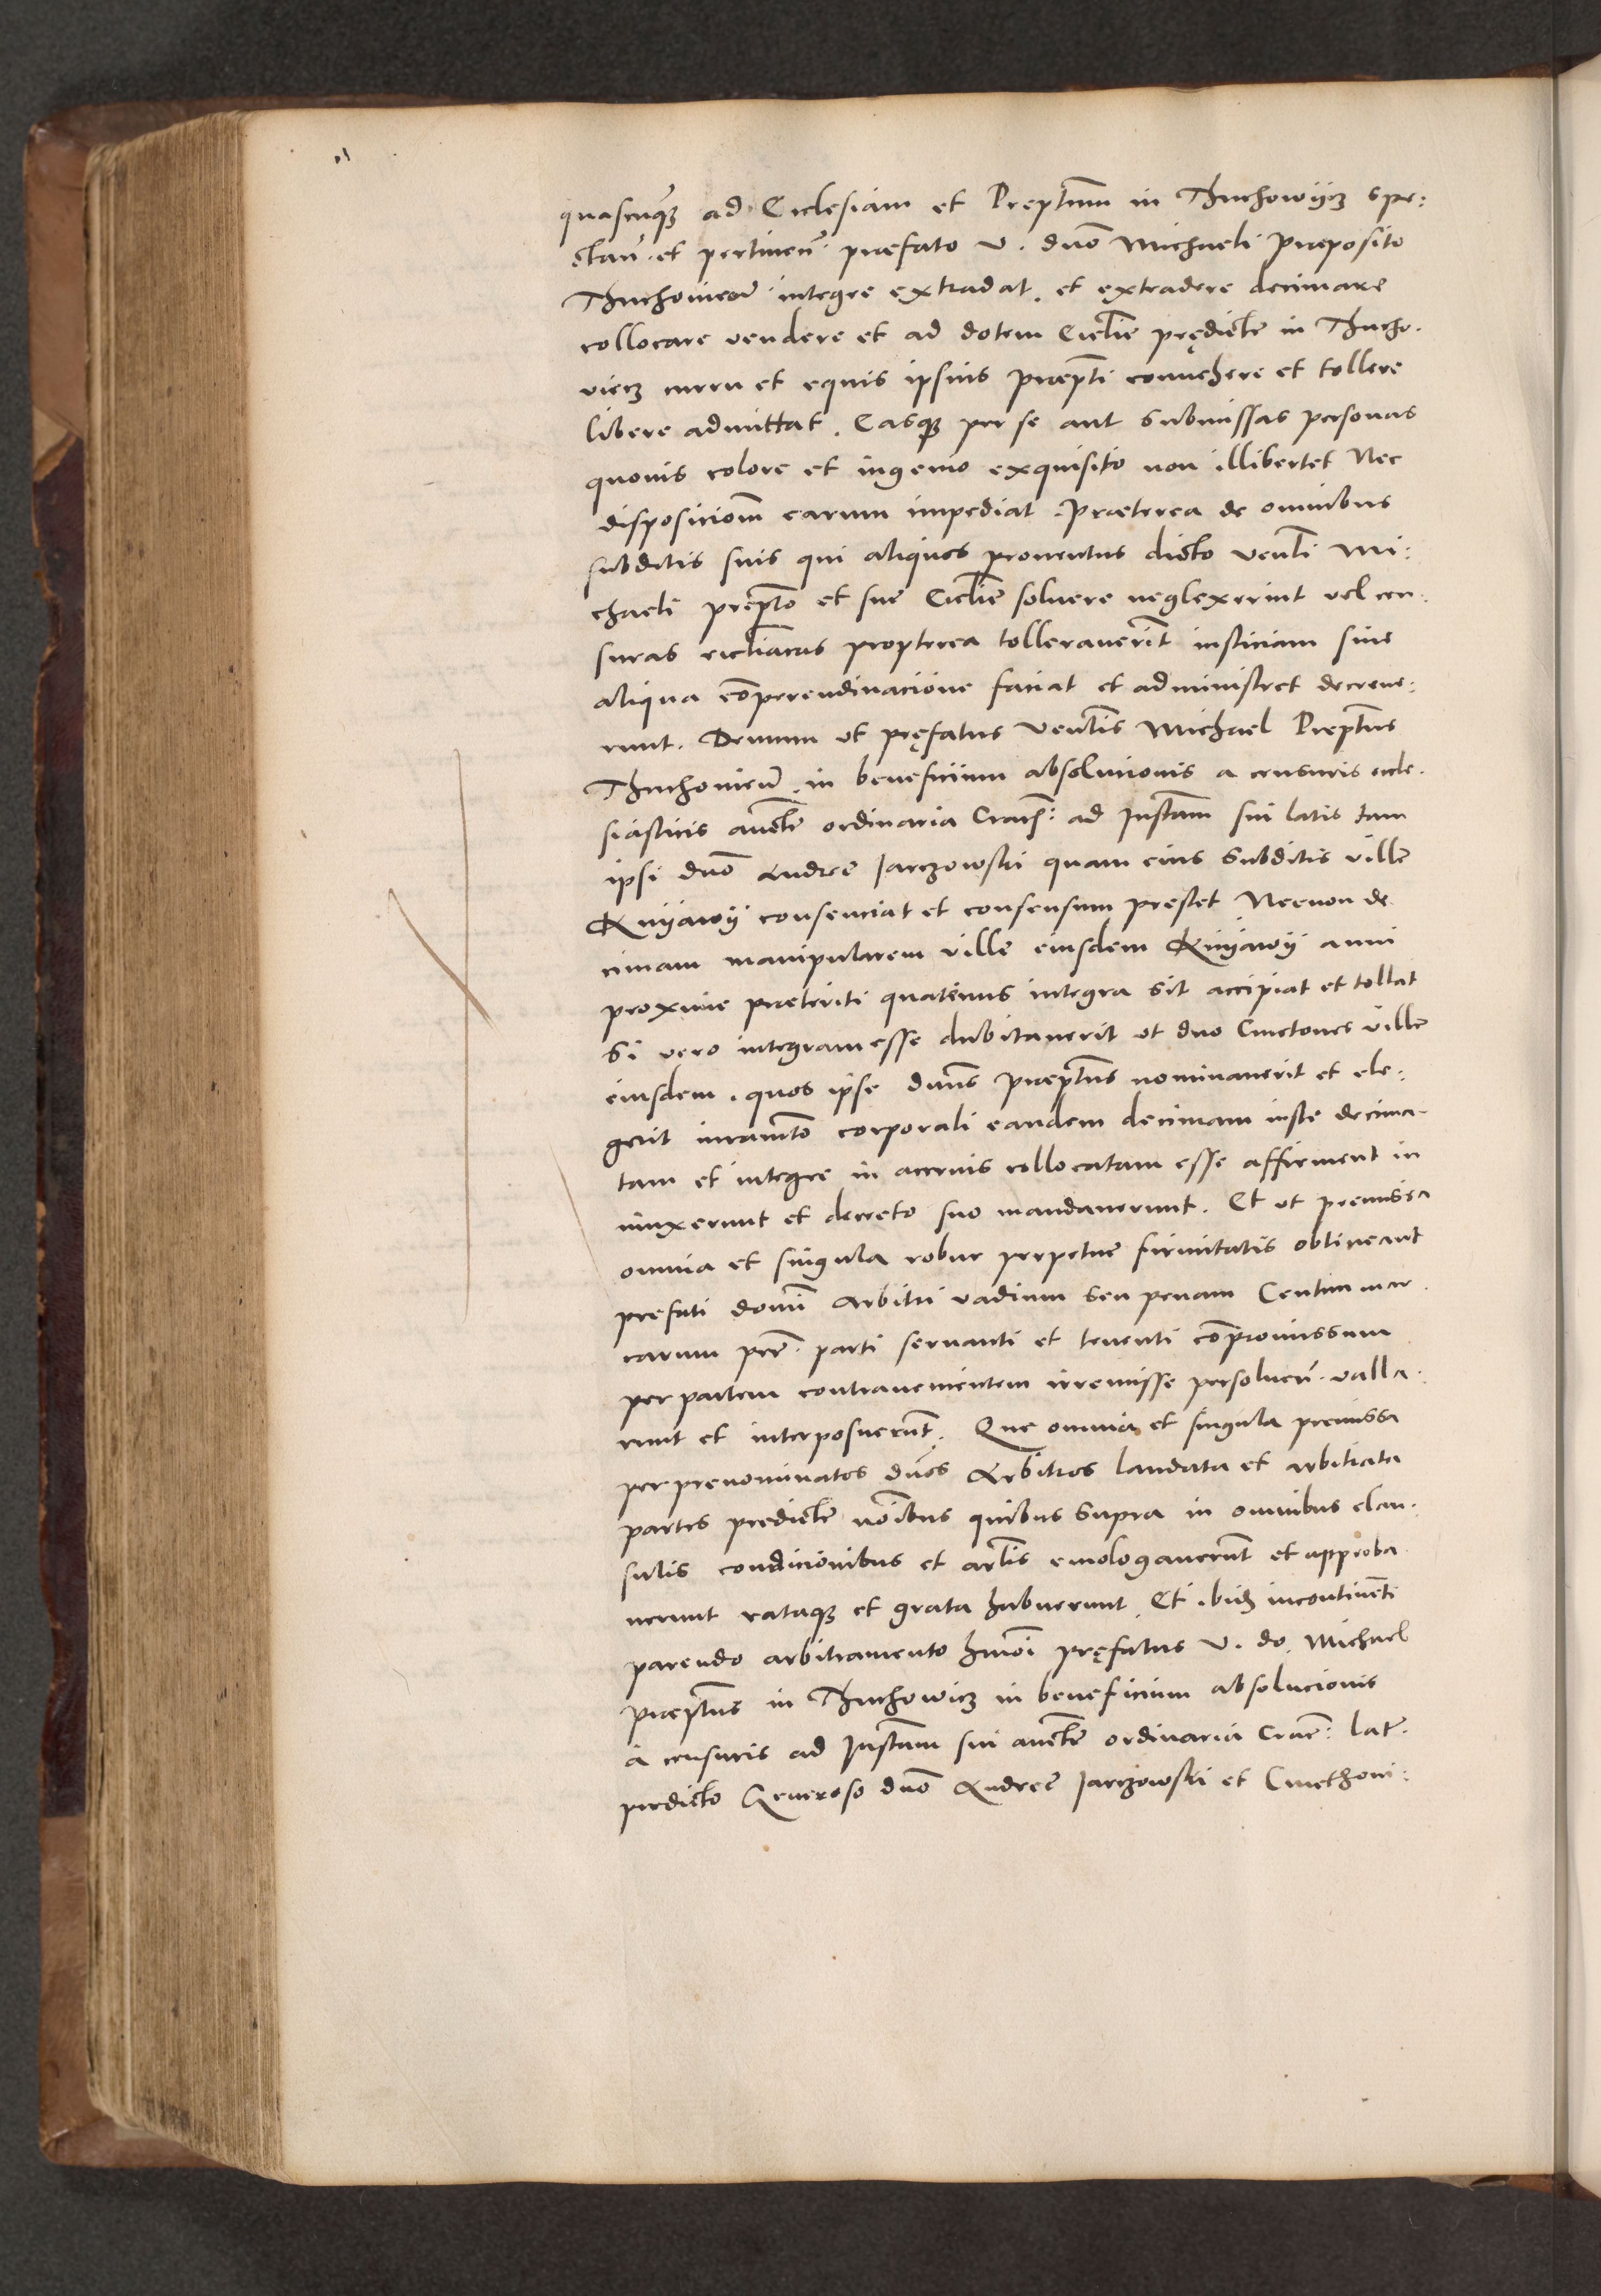 quascunq3 ad Ecclesiam et Preptum in Thuchowijcz spe:
ctan̄. et pertinen̄ praefato V. dn̄o Michaeli Praeposito
Thuchovicen̄ integre extradat. et extradere decimare
collocare vendere et ad dotem Ecclie prędicte in Thucho.
viecz curru et equis ipsius praepti convehere et tollere
libere admittat. Easq3 per se aut submissas personas
quovis colore et ingenio exquisito non illibertet Nec
disposiciom̄ earum impediat. Praeterea de omnibus
subditis suis qui aliquos proventus dicto venli Mi:
chaeli prepto et sue Ecclie solvere neglexerint vel cen.
suras ecclīacas propterea tolleraverīt iusticiam sine
aliqua cōperendinacione faciat et administret decreve:
runt. Demum ut pręfatus Venlis Michael Preptus
Thuchovicen̄. in beneficium absolucionis a censuris eccle.
siasticis auctē ordinaria Cracn̄: ad Instam̄ sui latis tam
ipsi dn̄o Andree Jarczowski quam eius subditis ville
Knijawij consenciat et consensum prestet Necnon de
cimam manipularem ville eiusdem Knijawij anni
proxime praeteriti quatenus integra sit accipiat et tollat
Si vero integram esse dubitaverit ut duo Cmetones ville
eiusdem. quos ipse dnūs praeptus nominaverit et ele:
gerit iuramto corporali eandem decimam iuste decima-
tam et integre in acervis collocatam esse affirment in
iunxerunt et decreto suo mandaverunt. Et ut premissa
omnia et singula robur perpetue firmitatis obtineant
prefati domī Arbitri vadium seu penam Centum mar.
carum pec̄. parti servanti et tenenti cōpromissum
per partem contravenientem irremisse persolven̄. valla.
runt et interposuerūt. Que omnia et singula premissa
per prenominatos dn̄os Arbitros laudata et arbitrata
partes predicte noībus quibus supra in omnibus clau.
sulis condicionibus et artlis emologaverūt et approba
verunt rataq3 et grata habuerunt. Et ibid3 incontinēti
parendo arbitramento hmōi pręfatus V. do. Michael
praeptus in Thuchowicz in beneficium absolucionis
a censuris ad Instam̄ sui auctē ordinaria Crac̄: lat̄.
predicto Generoso dn̄o Andree Jarczowski et Cmethoni: